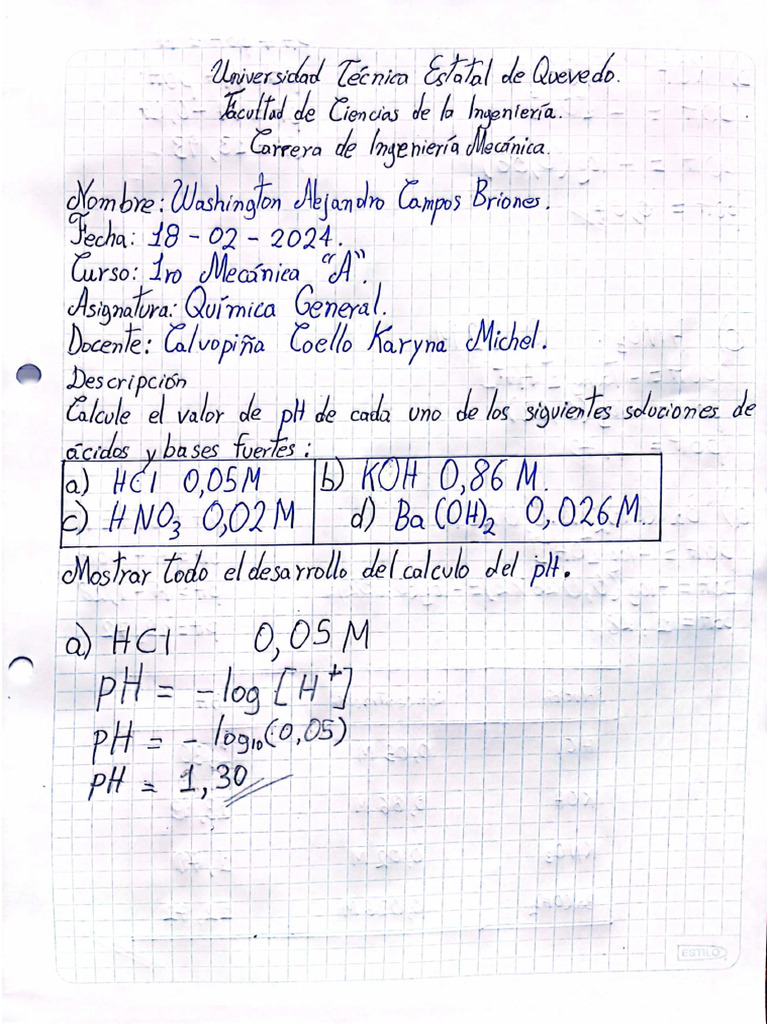 Universidad Técnica Estatal de Quevedo.
Facultad de Ciencias de la Ingeniería.
Carrera de Ingeniería Mecánica.
Nombre: Washington Alejandro Campos Briones.
Fecha: 18 - 02 - 2024.
Curso: 1ro Mecánica "A".
Asignatura: Química General.
Docente: Calvopiña Coello Karyna Michel.
Descripción
Calcule el valor de pH de cada uno de los siguientes soluciones de
ácidos y bases fuertes:
a) HCl 0,05M b) KOH 0,86 M.
c) HNO₃ 0,02M d) Ba(OH)₂ 0,026M.
Mostrar todo el desarrollo del calculo del pH.
a) HCl 0,05 M
pH = -log [H⁺]
pH = -log₁₀(0,05)
pH = 1,30
ESTILO